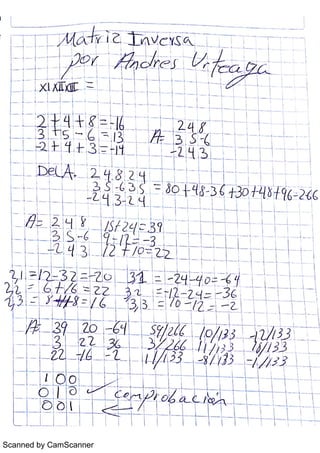 Matriz Inversa
por Andres Urteaga
=
2+4+8=-16
3+5-6=13
-2+4+3=-14
A= 2 4 8
3 5 -6
-2 4 3
Del A. 2 4 8 2 4
3 5 -6 3 5
-2 4 3 -2 4
= 80+48-36+30+48+96-266
A= 2 4 8
3 5 -6
-2 4 3
15+24=39
9-12=-3
12+10=22
2,1=12-32=-20
2,2= 6+16=22
2,3= 8+8=16
31= -24-40=-64
3,2=-12-24=-36
3,3=10-12=-2
A= 39 20 -64
3 22 36
22 -16 -2
59/266 10/133 -12/133
3/266 11/133 18/133
11/133 -8/133 -1/133
1 0 0
0 1 0
0 0 1
✓ comprobación
Scanned by CamScanner